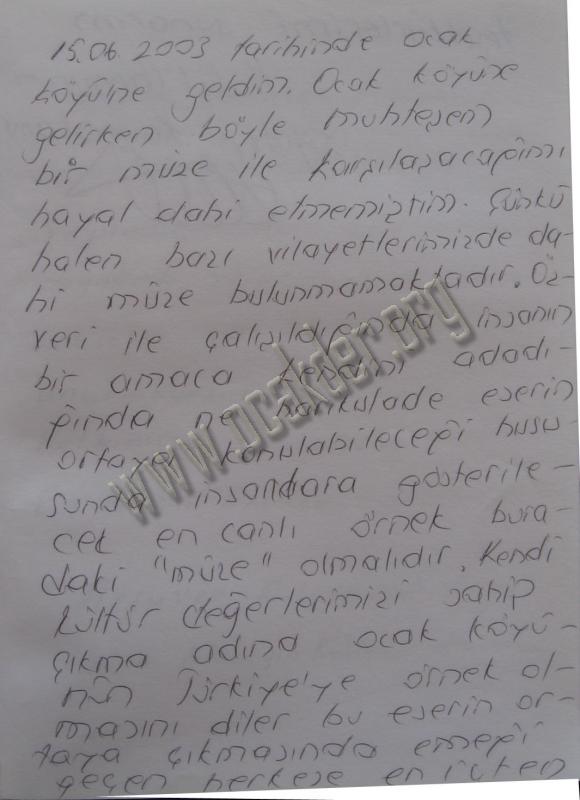 15.06.2003 tarihinde Ocak
köyüne geldim. Ocak köyüne
gelirken böyle muhteşem
bir müze ile karşılaşacağımı
hayal dahi etmemiştim. Çünkü
halen bazı vilayetlerimizde da-
hi müze bulunmamaktadır. Öz-
veri ile çalışıldığında insanın
bir amaca kendini adadı-
ğında ne harikulade eserin
ortaya konulabileceği husu-
sunda insanlara gösterile-
cek en canlı örnek bura-
daki "müze" olmalıdır. Kendi
kültür değerlerimizi sahip
çıkma adına Ocak köyü-
nün Türkiye'ye örnek ol-
masını diler bu eserin or-
taya çıkmasında emeği
geçen herkese en içten
www.ocakder.org